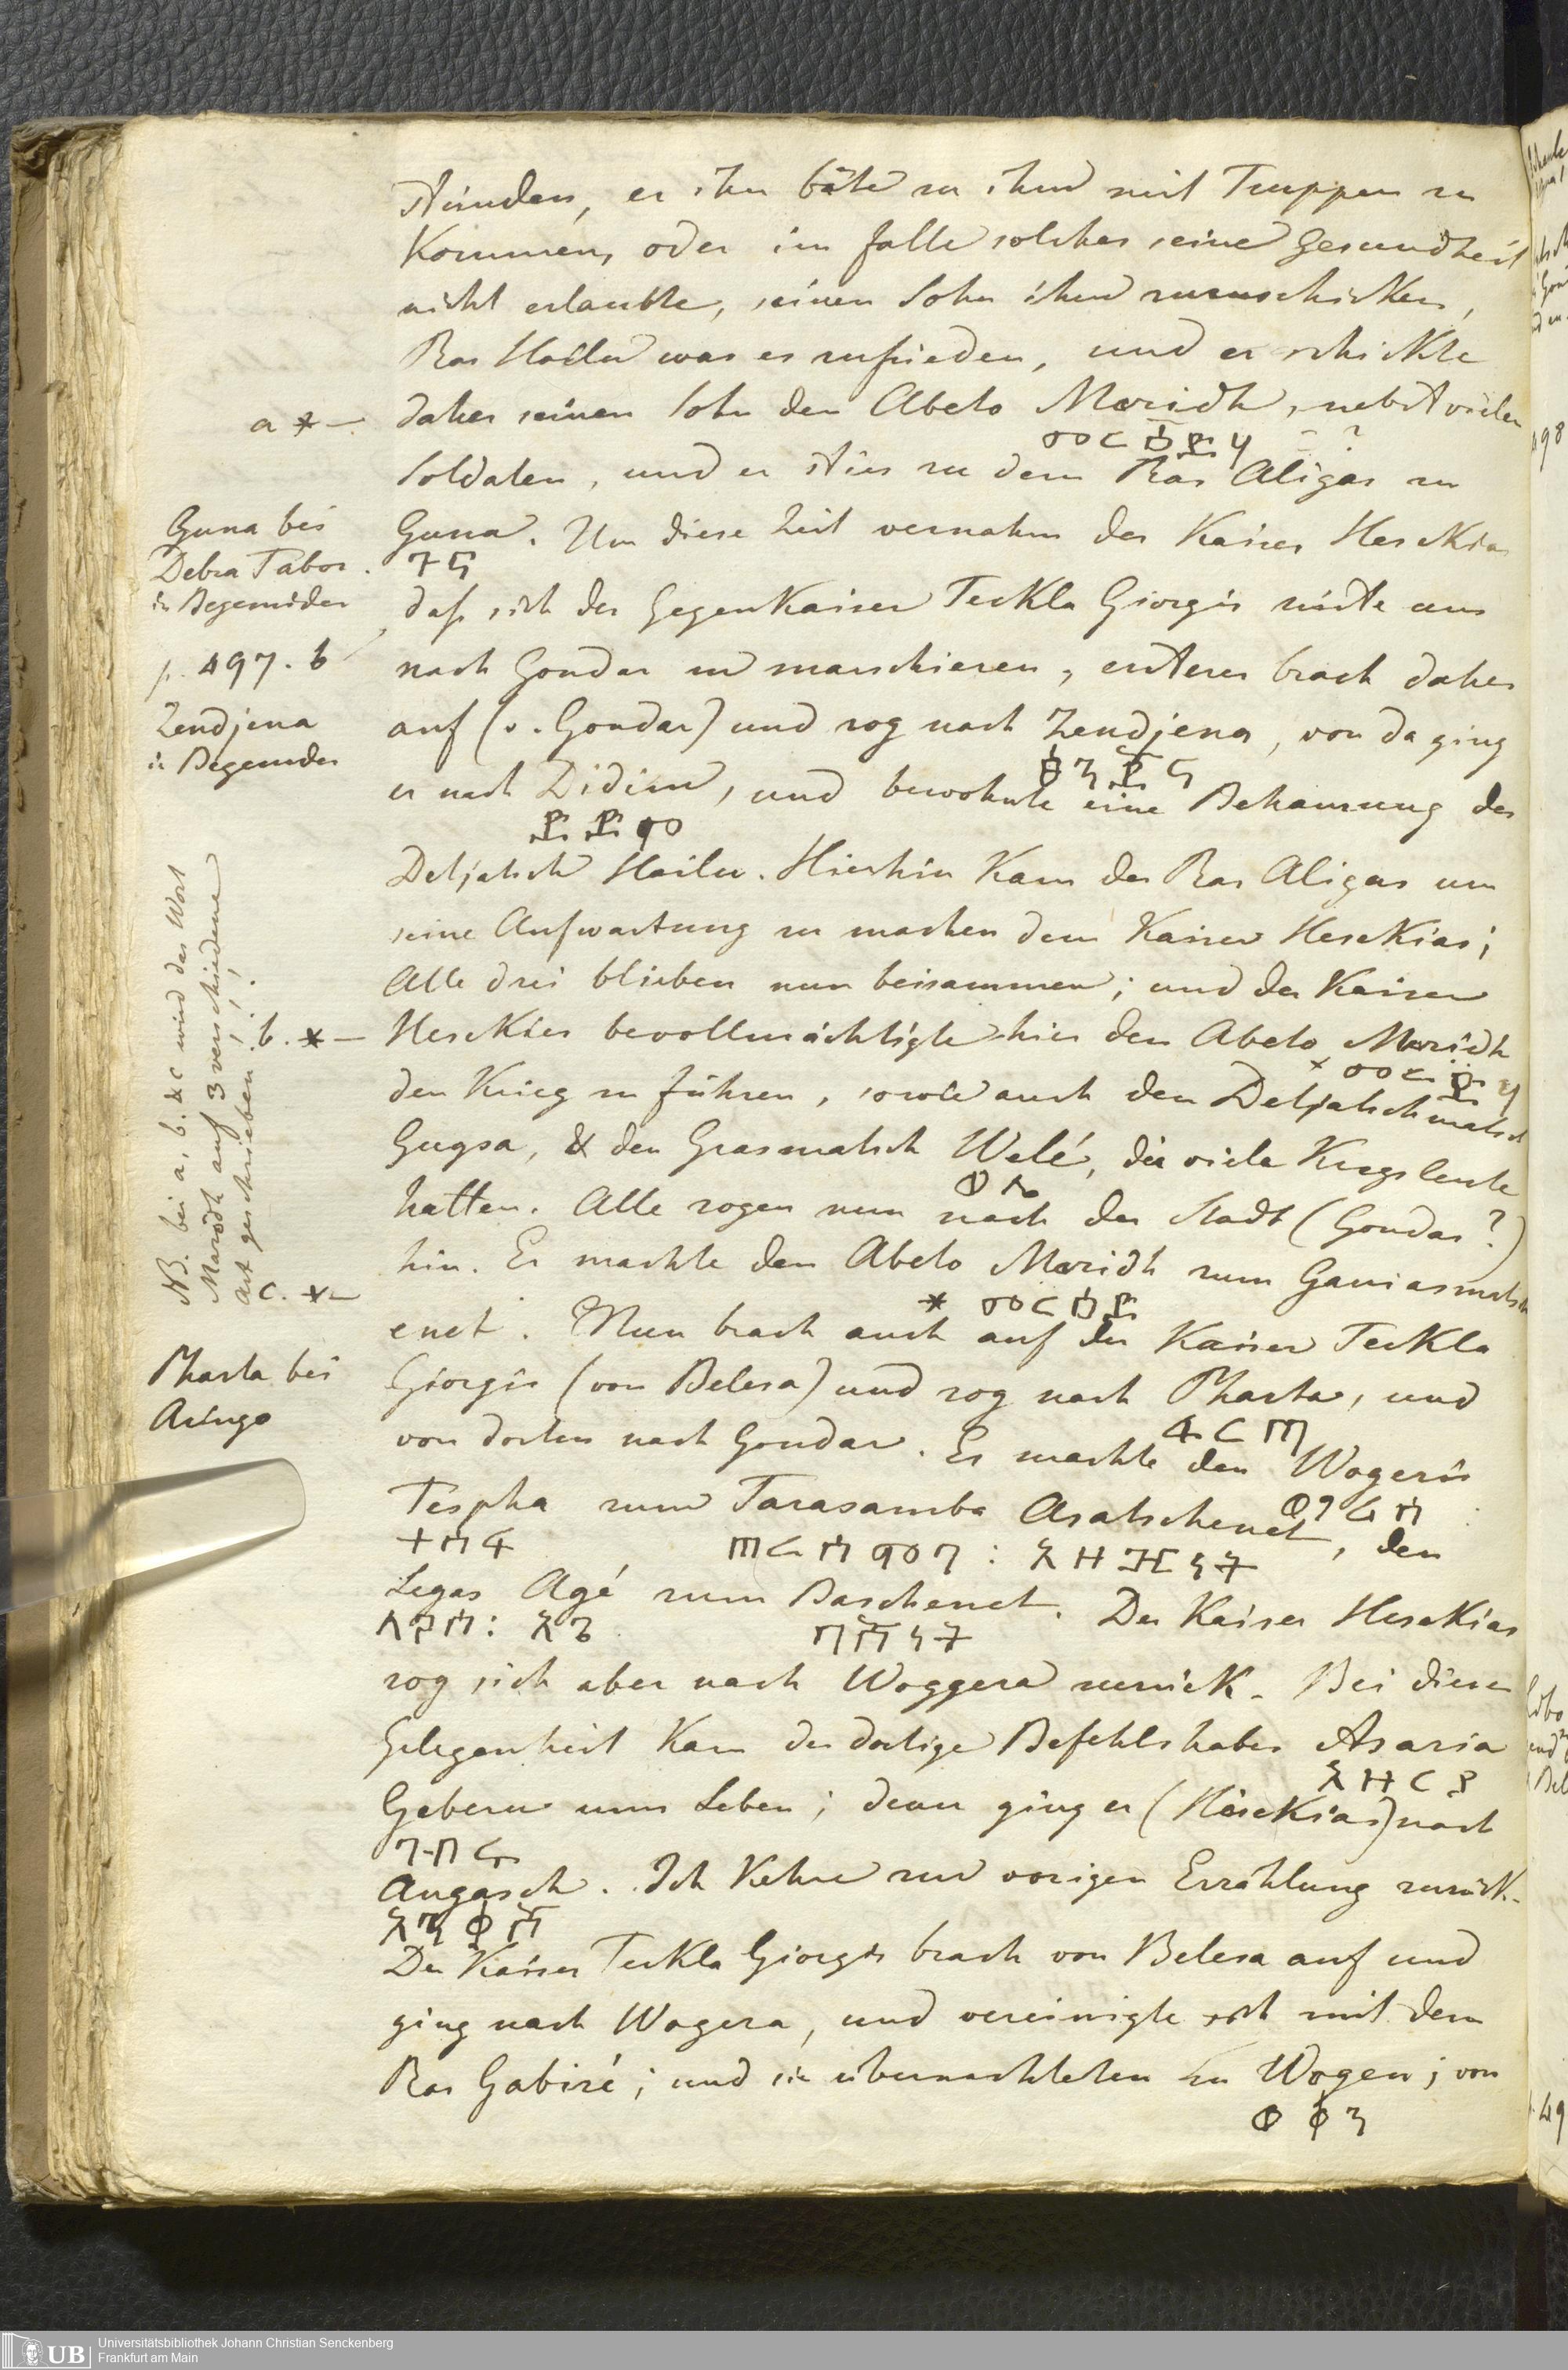 stünden, er ihn bäte zu ihm mit Truppen zu
Kommen, oder im Falle solches seine Gesundheit
nicht erlaubte, seinen Sohn ihm zuzuschicken,
Ras Hailu war es zufrieden, und er schickte
a *— daher seinen Sohn den Abeto Maridh, nebst vielen
Soldaten, und er sties zu dem Ras Aligas zu
Guna bei
Debra Tabor.
in Begemider
Guna. Um diese Zeit vernahm der Kaiser Heskias
ጉና
daß sich der GegenKaiser Teckla Giorgis rüste um
p. 497. b
nach Gondar zu marschieren, ersterer brach daher
Zendjena
in Begemder
auf (v. Gondar) und zog nach Zendjena, von da ging
er nach Didim, und bewohnte eine Behausung des
ዲዲም
Detjatsch Hailu. Hierhin Kam der Ras Aligas um
seine Aufwartung zu machen dem Kaiser Hesekias;
Alle drei blieben nun beisammen; und der Kaiser
b. *— Hesekias bevollmächtigte hier den Abeto Maridh
den Krieg zu führen, sowie auch den Detjatschmatsch
Gugsa, & den Grasmatsch Welé, die viele Kriegsleute
ወሌ
hatten. Alle zogen nun nach der Stadt (Gondar?)
NB. bei a, b. & c wird das Wort
Maridh auf 3 verschiedene
Art geschrieben!!!!
c. *—
hin. Er machte den Abeto Maridh zum Ganiasmatsch
enet. Nun brach auch auf der Kaiser Teckla
Pharta bei
Aringo
Giorgis (von Belesa) und zog nach Pharta, und
ፋርጣ
von dorten nach Gondar. Er machte den Wogeris
ወገሪስ
Tespha zum Tarasamba Asatschenet, den
ተስፋ ጠረሳምባ : አዛዥነት
Legas Agé zum Baschenet. Der Kaiser Hesekias
ለጋስ : አጌ ባሻነት
zog sich aber nach Woggera zurück. Bei dieser
Gelegenheit Kam der dortige Befehlshaber Asaria
አዛርያ
Geberu ums Leben; denn ging er (Hesekias) nach
ገብሩ
Angasch. Ich Kehre zur vorigen Erzählung zurück.
Der Kaiser Teckla Giorgis brach von Belesa auf und
ging nach Wogera, und vereinigte sich mit dem
Ras Gabiré; und sie übernachteten zu Wogen; von
ወቀን
Universitätsbibliothek Johann Christian Senckenberg
Frankfurt am Main
UB